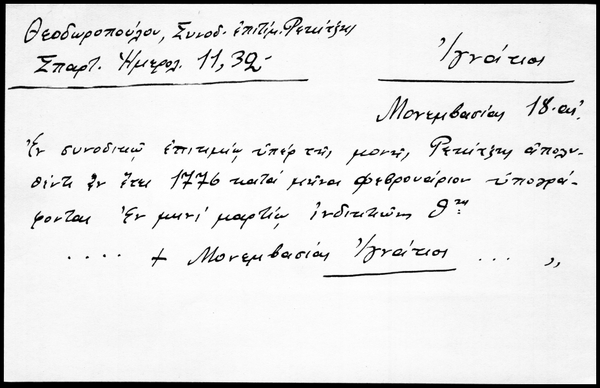 Θεοδωροπούλου, Συνοδ. ἐπιτίμ. Ρεκίτζης
Σπαρτ. Ἡμερολ. 11, 32-
Ἰγνάτιος
Μονεμβασίας 18. αἰ.
Ἐν συνοδικῷ ἐπιτιμίῳ ὑπὲρ τῆς μονῆς Ρεκίτζης ἀπολυ-
θέντι ἐν ἔτει 1776 κατά μῆνα φεβρουάριον ὑπογρά-
φονται Ἐν μηνί μαρτίῳ ἰνδικτιῶνος 9ης
.... + Μονεμβασίας Ἰγνάτιος ... ,,